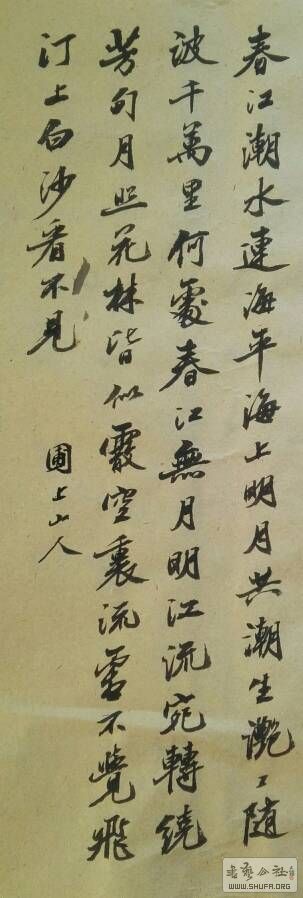 春江潮水連海平海上明月共潮生灔〻随
波千萬里何處春江無月明江流宛轉繞
芳甸月照花林皆似霰空裏流霜不覺飛
汀上白沙看不見
圃上山人
WWW.SHUFA.ORG